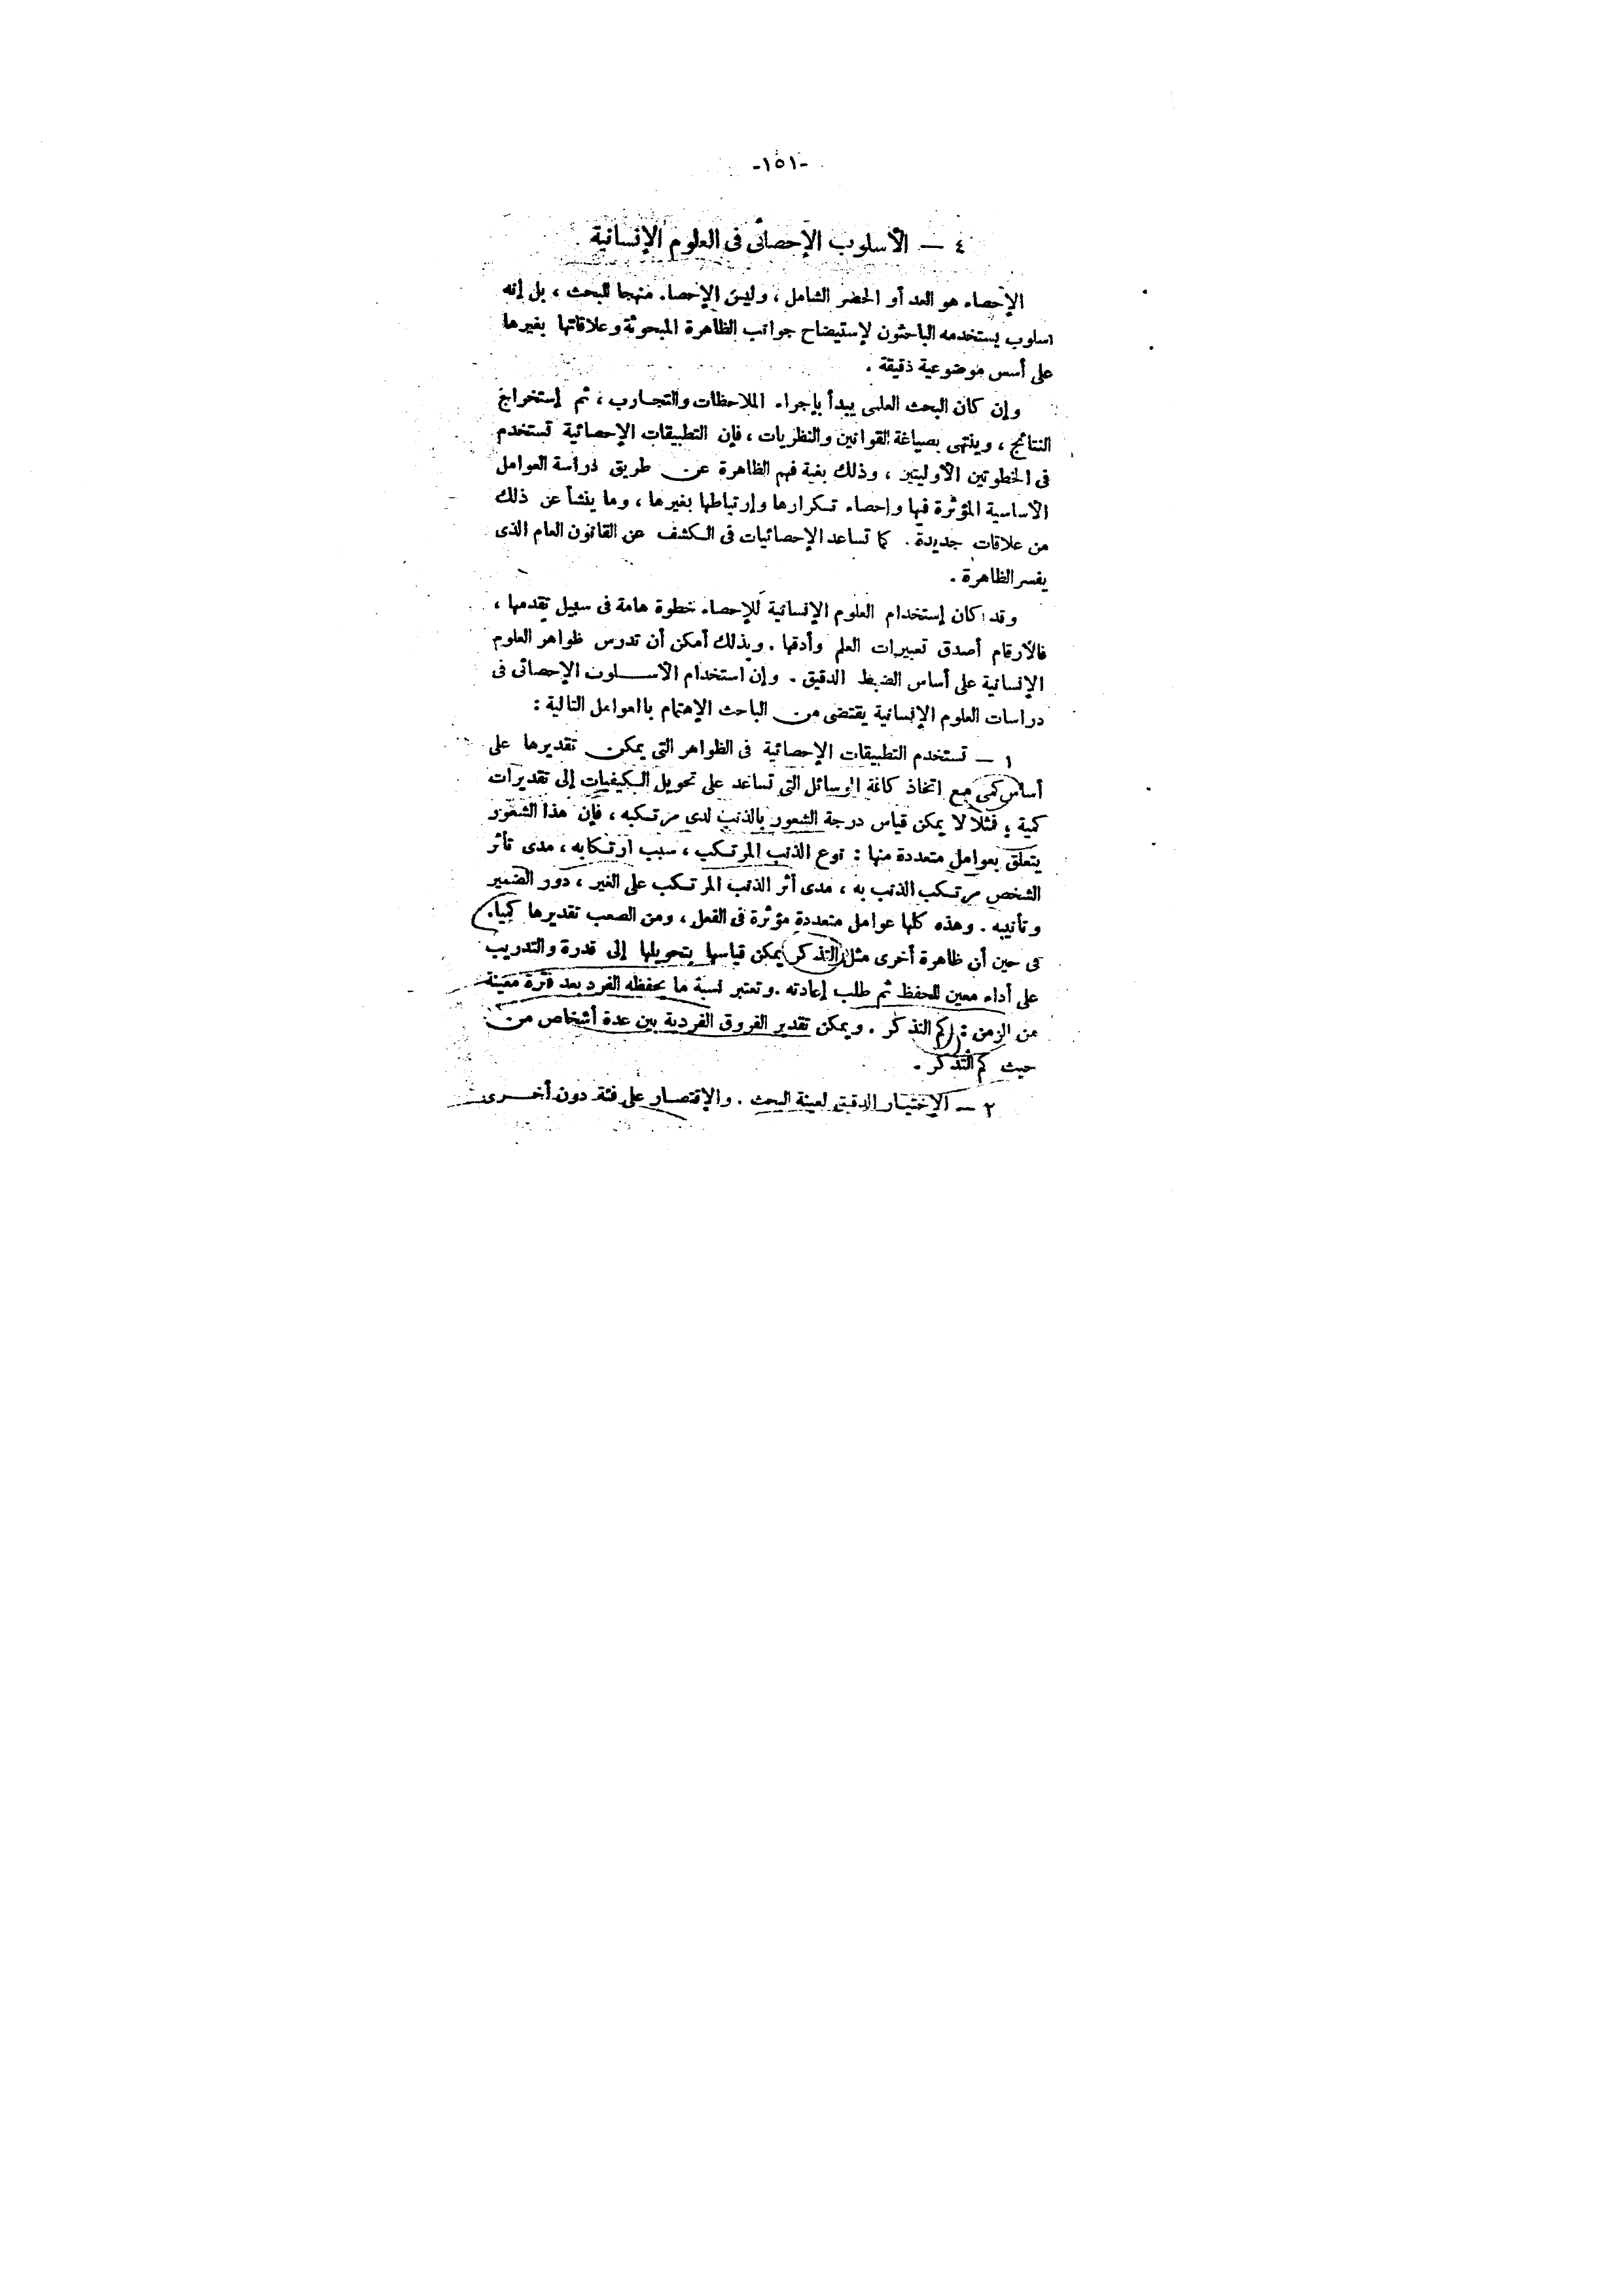 -١٥١-
٤ — الأسلوب الإحصائى فى العلوم الإنسانية
الإحصاء هو العد أو الحصر الشامل ، وليس الإحصاء منهجا للبحث ، بل إنه
اسلوب يستخدمه الباحثون لإستيضاح جوانب الظاهرة المبحوثة وعلاقاتها بغيرها
على أسس موضوعية دقيقة .
وإن كان البحث العلمى يبدأ بإجراء الملاحظات والتجارب ، ثم إستخراج
النتائج ، وينتهى بصياغة القوانين والنظريات ، فإن التطبيقات الإحصائية تستخدم
فى الخطوتين الأوليتين ، وذلك بغية فهم الظاهرة عن طريق دراسة العوامل
الأساسية المؤثرة فيها وإحصاء تكرارها وإرتباطها بغيرها ، وما ينشأ عن ذلك
من علاقات جديدة . كما تساعد الإحصائيات فى الكشف عن القانون العام الذى
يفسر الظاهرة .
وقد كان إستخدام العلوم الإنسانية للإحصاء خطوة هامة فى سبيل تقدمها ،
فالأرقام أصدق تعبيرات العلم وأدقها . وبذلك أمكن أن تدرس ظواهر العلوم
الإنسانية على أساس الضبط الدقيق . وإن استخدام الأسلوب الإحصائى فى
دراسات العلوم الإنسانية يقتضى من الباحث الإهتمام بالعوامل التالية :
١ — تستخدم التطبيقات الإحصائية فى الظواهر التى يمكن تقديرها على
أساس كمى مع اتخاذ كافة الوسائل التى تساعد على تحويل الكيفيات إلى تقديرات
كمية ؛ فمثلا لا يمكن قياس درجة الشعور بالذنب لدى مرتكبه ، فإن هذا الشعور
يتعلق بعوامل متعددة منها : نوع الذنب المرتكب ، سبب ارتكابه ، مدى تأثر
الشخص مرتكب الذنب به ، مدى أثر الذنب المرتكب على الغير ، دور الضمير
وتأنيبه . وهذه كلها عوامل متعددة مؤثرة فى الفعل ، ومن الصعب تقديرها كميا .
فى حين أن ظاهرة أخرى مثل التذكر يمكن قياسها بتحويلها إلى قدرة والتدريب
على أداء معين للحفظ ثم طلب إعادته . وتعتبر نسبة ما يحفظه الفرد بعد فترة معينة
من الزمن : كم التذكر . ويمكن تقدير الفروق الفردية بين عدة أشخاص من
حيث كم التذكر .
٢ — الإختيار الدقيق لعينة البحث . والإقتصار على فئة دون أخرى